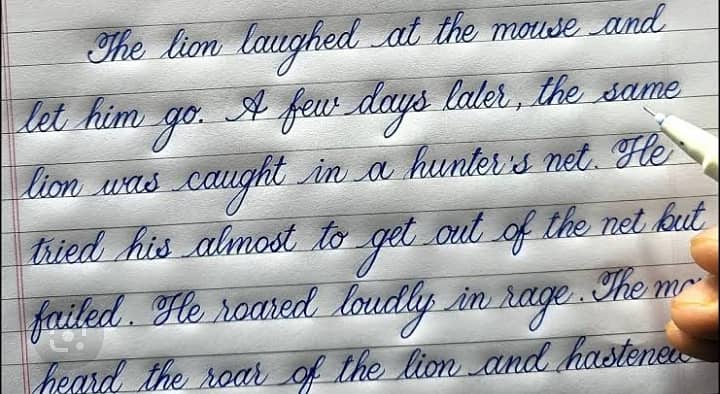 The lion laughed at the mouse and
let him go. A few days later, the same
lion was caught in a hunter's net. He
tried his almost to get out of the net but
failed. He roared loudly in rage. The
heard the roar of the lion and